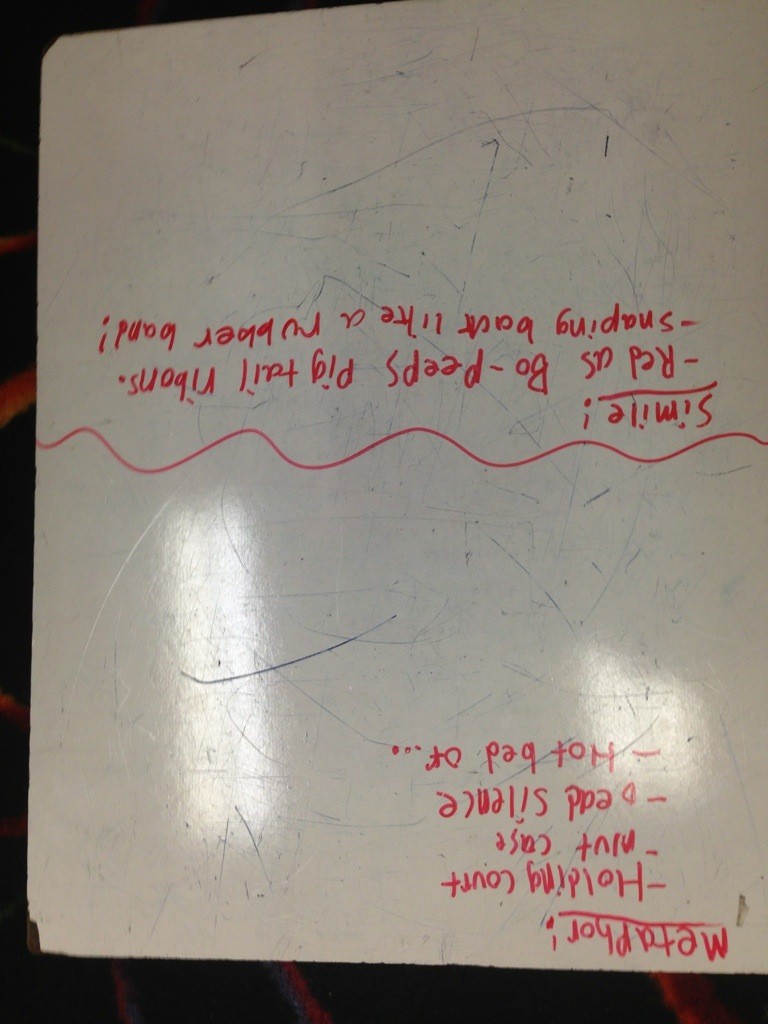 Metaphor!
-Holding court
-nut case
-Dead silence
-Hot bed of...
Simile!
-Red as Bo-peeps Pigtail ribons.
-snaping back like a rubber band!